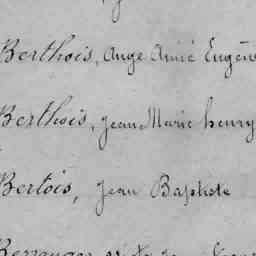 Berthois, Ange Aimé Eugèn
Berthois, Jean Marie henry
Bertois, Jean Baptiste